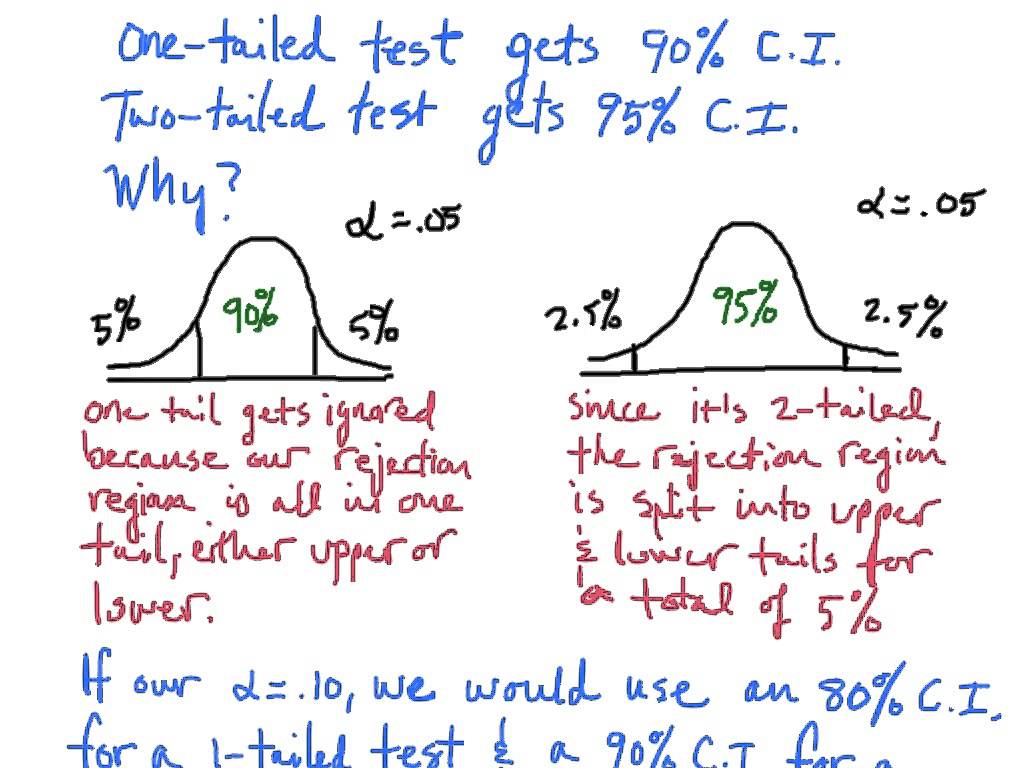 One-tailed test gets 90% C.I.
Two-tailed test gets 95% C.I.
Why?
α = .05
5%
90%
5%
one tail gets ignored
because our rejection
region is all in one
tail, either upper or
lower.
α = .05
2.5%
95%
2.5%
Since it's 2-tailed,
the rejection region
is split into upper
& lower tails for
a total of 5%
If our α = .10, we would use an 80% C.I.
for a 1-tailed test & a 90% C.I. for a